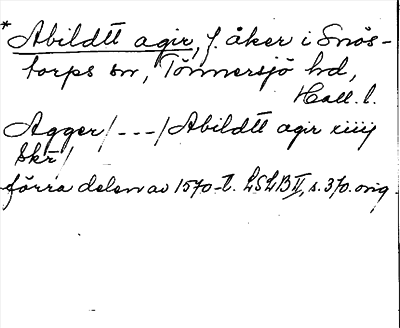 * Abildtt agir, f. åker i Snös-
torps sn, Tönnersjö hd,
Hall. l.
Agger/ - - - / Abildtt agir xiiij
Skr/
förra delen av 1570-t. LSLB II, s. 370. orig.